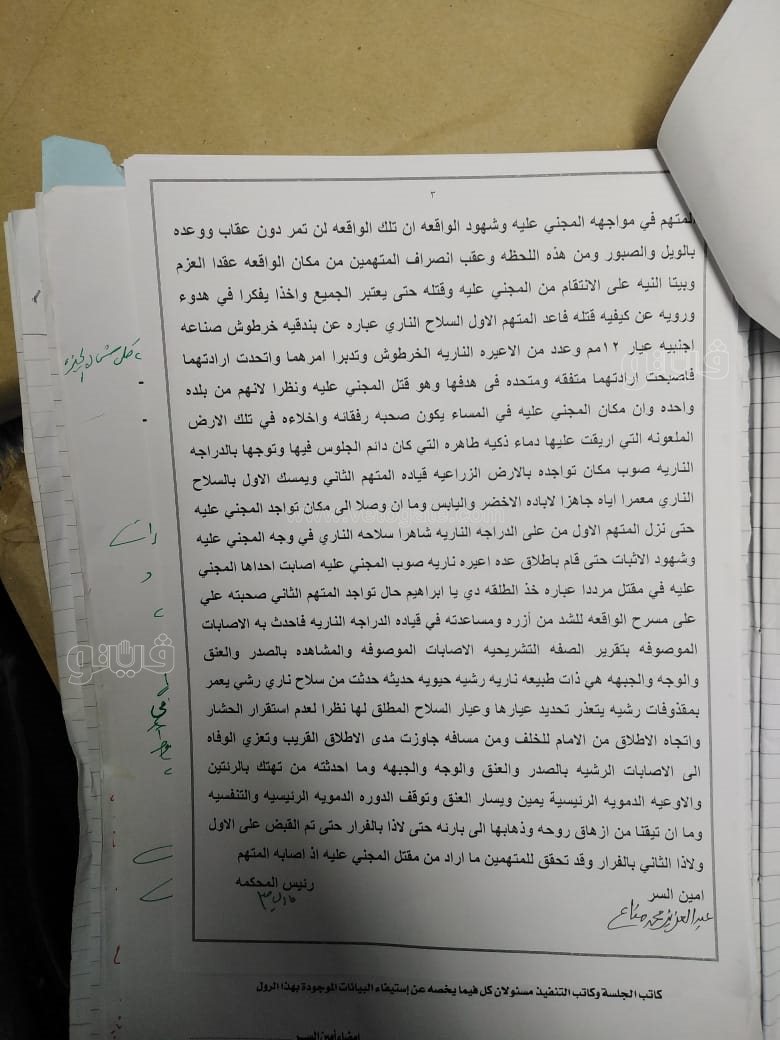 ٣
المتهم في مواجهه المجني عليه وشهود الواقعه ان تلك الواقعه لن تمر دون عقاب ووعده
بالويل والصبور ومن هذه اللحظه وعقب انصراف المتهمين من مكان الواقعه عقدا العزم
وبيتا النيه على الانتقام من المجني عليه وقتله حتى يعتبر الجميع واخذا يفكرا في هدوء
ورويه عن كيفيه قتله فاعد المتهم الاول السلاح الناري عباره عن بندقيه خرطوش صناعه
اجنبيه عيار ١٢مم وعدد من الاعيره الناريه الخرطوش وتدبرا امرهما واتحدت ارادتهما
فاصبحت ارادتهما متفقه ومتحده فى هدفها وهو قتل المجني عليه ونظرا لانهم من بلده
واحده وان مكان المجني عليه في المساء يكون صحبه رفقائه واخلاءه في تلك الارض
الملعونه التي اريقت عليها دماء ذكيه طاهره التي كان دائم الجلوس فيها وتوجها بالدراجه
الناريه صوب مكان تواجده بالارض الزراعيه قياده المتهم الثاني ويمسك الاول بالسلاح
الناري معمرا اياه جاهزا لاباده الاخضر واليابس وما ان وصلا الى مكان تواجد المجني عليه
حتى نزل المتهم الاول من على الدراجه الناريه شاهرا سلاحه الناري في وجه المجني عليه
وشهود الاثبات حتى قام باطلاق عده اعيره ناريه صوب المجني عليه اصابت احداها المجني
عليه في مقتل مرددا عباره خذ الطلقه دي يا ابراهيم حال تواجد المتهم الثاني صحبته علي
على مسرح الواقعه للشد من أزره ومساعدته في قياده الدراجه الناريه فاحدث به الاصابات
الموصوفه بتقرير الصفه التشريحيه الاصابات الموصوفه والمشاهده بالصدر والعنق
والوجه والجبهه هي ذات طبيعه ناريه رشيه حيويه حديثه حدثت من سلاح ناري رشي يعمر
بمقذوفات رشيه يتعذر تحديد عيارها وعيار السلاح المطلق لها نظرا لعدم استقرار الحشار
واتجاه الاطلاق من الامام للخلف ومن مسافه جاوزت مدى الاطلاق القريب وتعزي الوفاه
الى الاصابات الرشيه بالصدر والعنق والوجه والجبهه وما احدثته من تهتك بالرئتين
والاوعيه الدمويه الرئيسية يمين ويسار العنق وتوقف الدوره الدمويه الرئيسيه والتنفسيه
وما ان تيقنا من ازهاق روحه وذهابها الى بارئه حتى لاذا بالفرار حتى تم القبض على الاول
ولاذا الثاني بالفرار وقد تحقق للمتهمين ما اراد من مقتل المجني عليه اذ اصابه المتهم
امين السر
رئيس المحكمه
عبدالعزيز محمد مناع
كاتب الجلسة وكاتب التنفيذ مسئولان كل فيما يخصه عن إستيفاء البيانات الموجودة بهذا الرول
إمضاء أمين السر
ڤيتو
www.vetogate.com